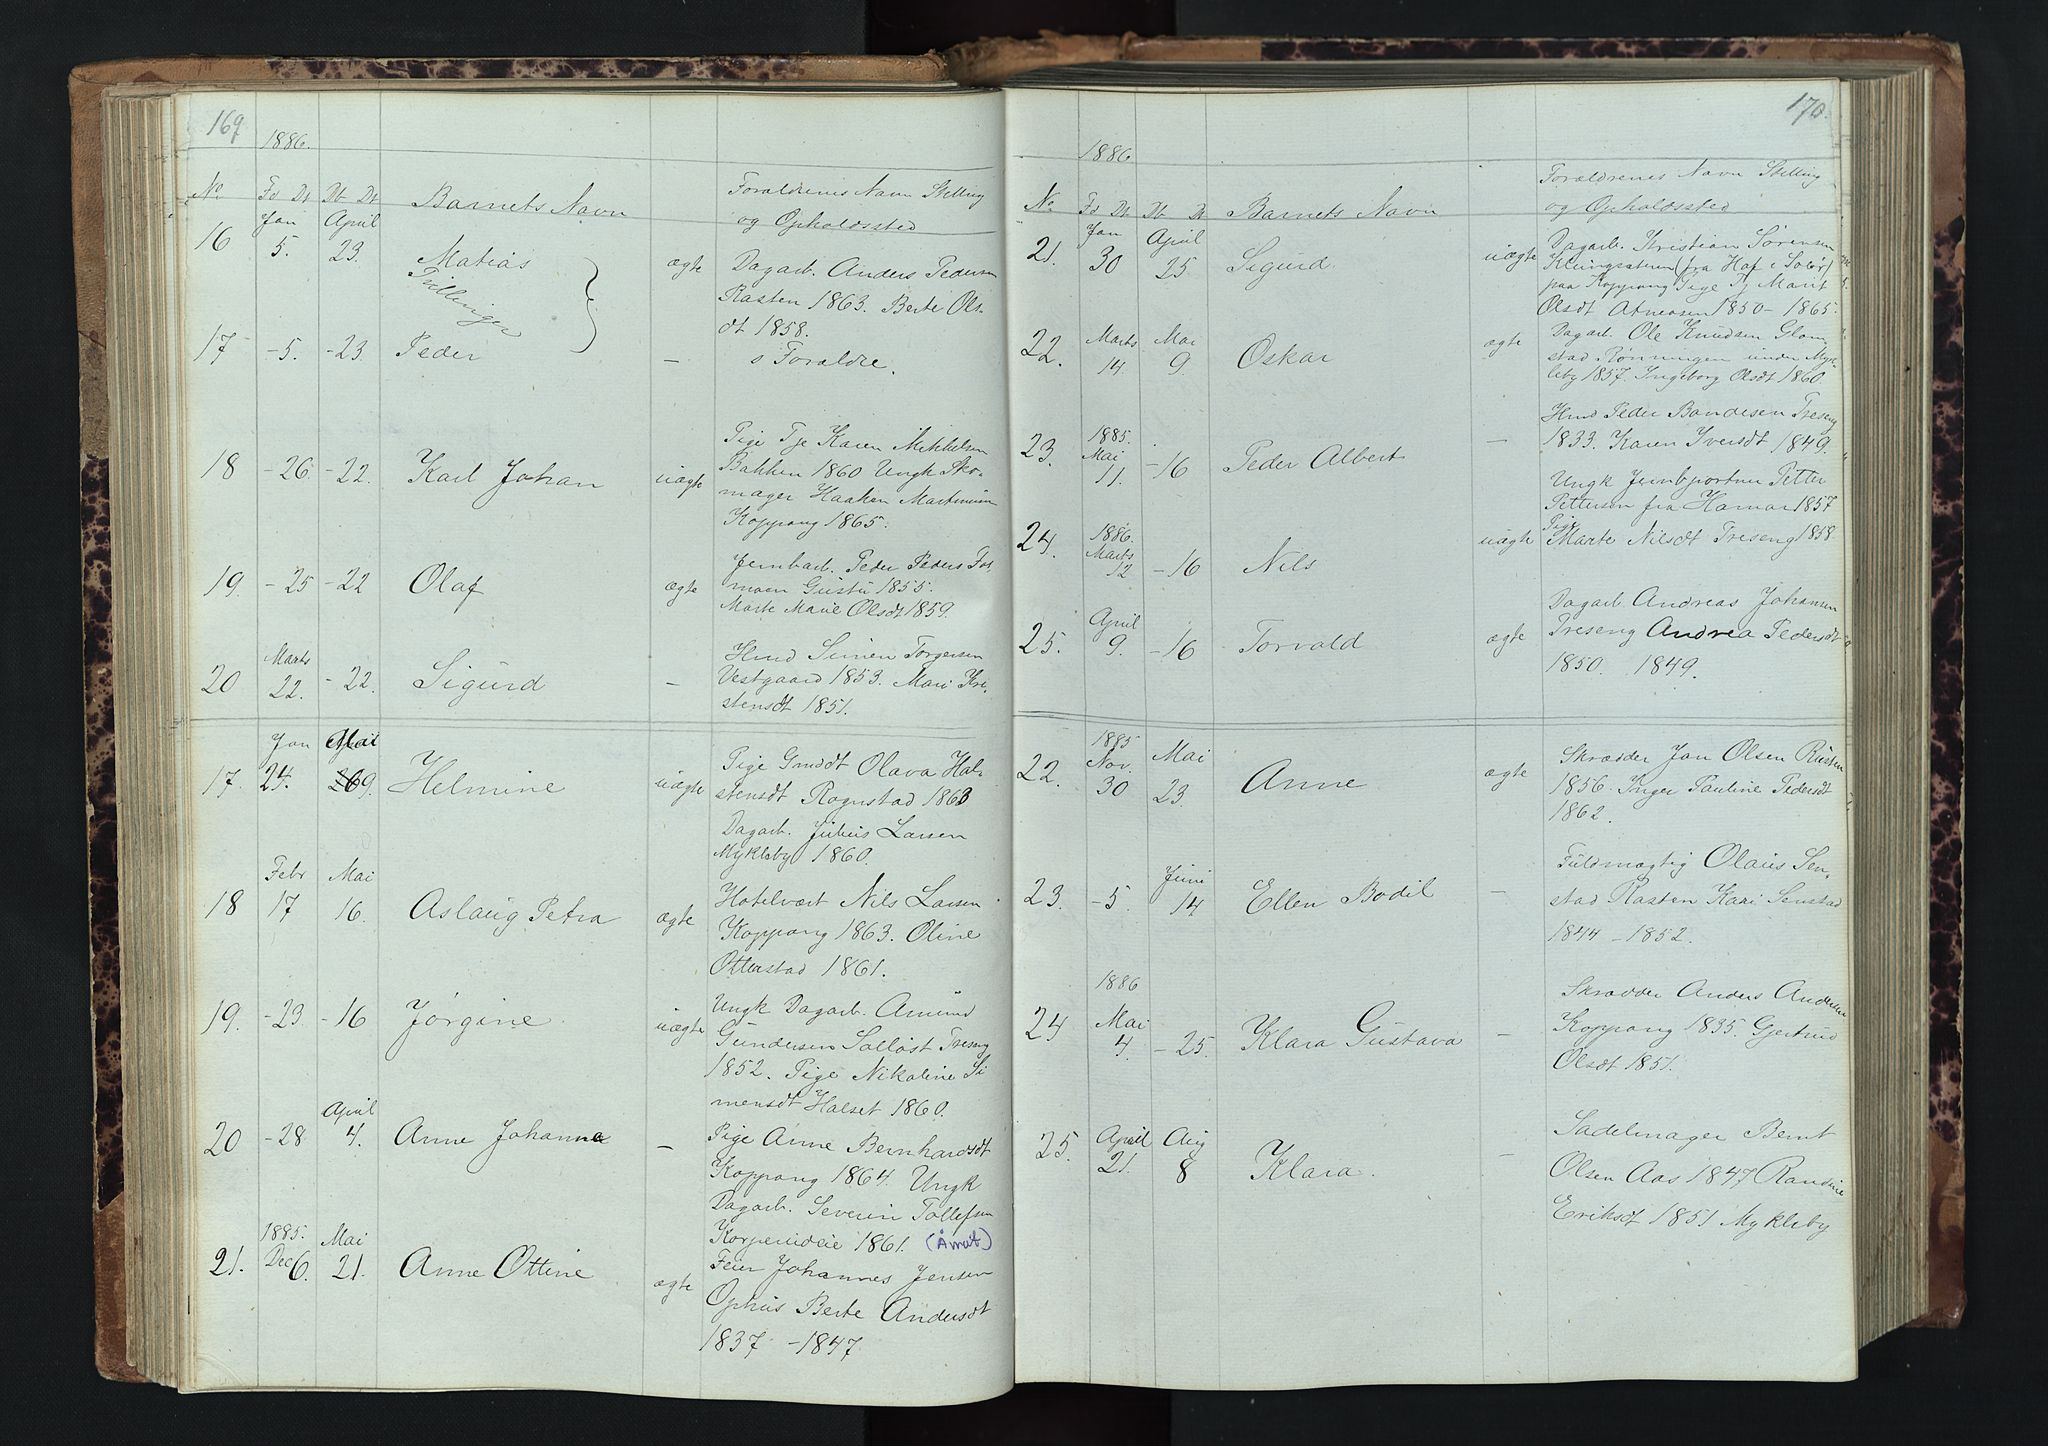 169
1886.
No Fd Dt Db Dt Barnets Navn Forældrenes Navn Stilling
og Opholdssted
Jan April
16 5. 23. Matias ægte Dagarb. Anders Pedersen
Tvillinger Rasten 1863. Berte Ols-
dt 1858.
17 -5. -23. Peder — s Foraldre.
18 -26. -22. Karl Johan uægte Pige Tje Karen Mikkelsen
Bakken 1860 Ungk Sko-
mager Haakon Martinusen
Koppang 1865.
19. -25 -22 Olaf ægte Jernbarb. Peder Peders
moen 1855.
Marte Marie Olsdt 1859.
Marts
20 22. -22. Sigurd — Hmd Simen Torgersen
Vestgaard 1853. Mari Kri-
stensdt 1851.
Jan Mai
17. 24. 9. Helmine uægte Pige Gmddt Olava Hal-
stensdt Rognstad 1863
Dagarb. Julius Larsen
Mykleby 1860.
Febr Mai
18 17 16. Aslaug Petra ægte Hotelvært Nils Larsen
Koppang 1863. Oline
Otterstad 1861.
19. -23. -16 Jørgine uægte Ungk Dagarb. Amund
Gundersen Solløst Treseng
1852. Pige Nikoline Si
mensdt Halset 1860.
April
20 -28 4. Anne Johanne — Pige Anne Bernhardsdt
Koppang 1864. Ungk
Dagarb. Severin Tollefsen
Korpreideie 1861. (Åmot)
1885. Mai
21. Dec 6. 21. Anne Ottine ægte Feier Johannes Jensen
Ophus Berte Andersdt
1837 -1847.
170.
1886
No. Fd Dt Db Dt Barnets Navn Forældrenes Navn Stilling
og Opholdssted
Jan April
21. 30 25 Sigurd uægte Dagarb. Kristian Sørensen
Klungsæteren (fra Hof i Solør)
paa Koppang Pige Tj Marit
Olsdt Atneosen 1850 - 1865.
Marts Mai
22. 14. 9. Oskar ægte Dagarb Ole Knudsen Glom
stad Rønningen under Myk-
leby 1857. Ingeborg Olsdt 1860.
1885.
Mai
23. 11. -16 Peder Albert — Hmd Peder Bendesen Treseng
1833. Karen Iversdt 1849.
1886.
Marts
24. 12 -16 Nils uægte Ungk Jernbportner Petter
Pettersen fra Hamar 1857
Pige
Marte Nilsdt Treseng 1858.
April
25. 9. -16 Torvald ægte Dagarb. Andreas Johansen
Treseng Andrea Pedersdt
1850. 1849.
1885
Nov. Mai
22. 30 23. Anne ægte Skrædder Jon Olsen Rasten
1856. Inger Pauline Pedersdt
1862.
Juni
23. -5. 14 Ellen Bodil — Fuldmægtig Olaus Sen-
stad Rasten Kari Senstad
1844 - 1852.
1886
Mai
24 4. -25. Klara Gustava — Skrædder Anders Andersen
Koppang 1835. Gjertrud
Olsdt 1851.
April Aug
25. 21. 8 Klara. — Sadelmager Bernt
Olsen Aas 1847 Randine
Eriksdt 1851 Mykleby